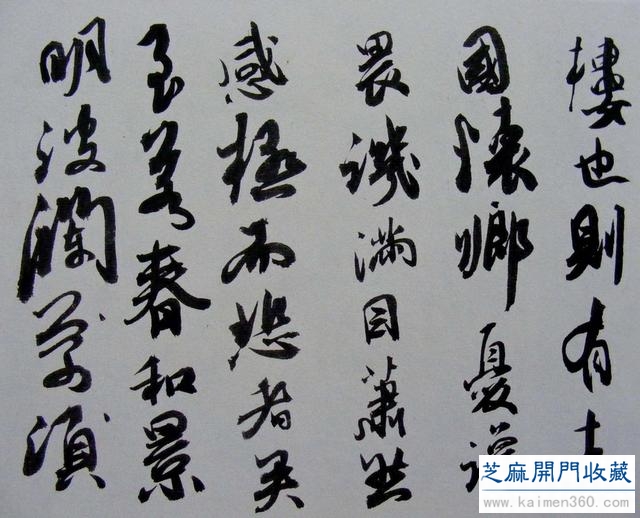 樓也則有去
國懷鄉憂讒
畏譏滿目蕭然
感極而悲者矣
至若春和景
明波瀾萬頃
芝麻開門收藏
www.kaimen360.com